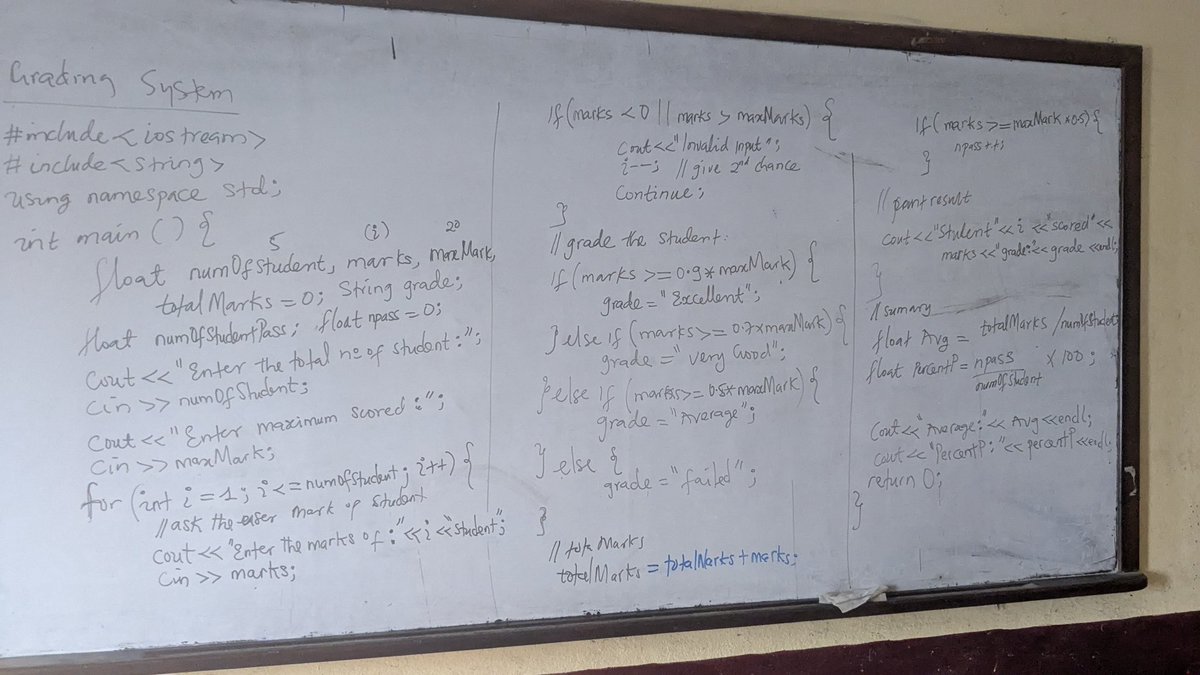 Grading System
#include<iostream>
#include<string>
using namespace std;
int main () {
5 (i) 20
float numOfStudent, marks, maxMark,
totalMarks = 0; String grade;
float numOfStudentPass; float npass = 0;
Cout << "Enter the total no of student:";
Cin >> numOfStudent;
Cout << "Enter maximum scored:";
Cin >> maxMark;
for (int i = 1; i <= numOfStudent; i++) {
//ask the user mark of student
Cout << "Enter the marks of:" << i << "student";
Cin >> marks;
If (marks < 0 || marks > maxMarks) {
Cout << "Invalid input";
i--; // give 2nd chance
Continue;
}
// grade the student.
If (marks >= 0.9 * maxMark) {
grade = "Excellent";
} else if (marks >= 0.7 * maxMark) {
grade = "very Good";
} else if (marks >= 0.5 * maxMark) {
grade = "Average";
} else {
grade = "failed";
}
// tota Marks
totalMarks = totalMarks + marks;
If (marks >= maxMark * 0.5) {
npass++;
}
// print result
Cout << "Student" << i << "scored" <<
marks << "grade:" << grade << endl;
}
// sumary
float Avg = totalMarks / numOfStudent
float PercentP = npass / numOfStudent × 100;
Cout << "Average:" << Avg << endl;
Cout << "PercentP:" << percentP << endl;
return 0;
}